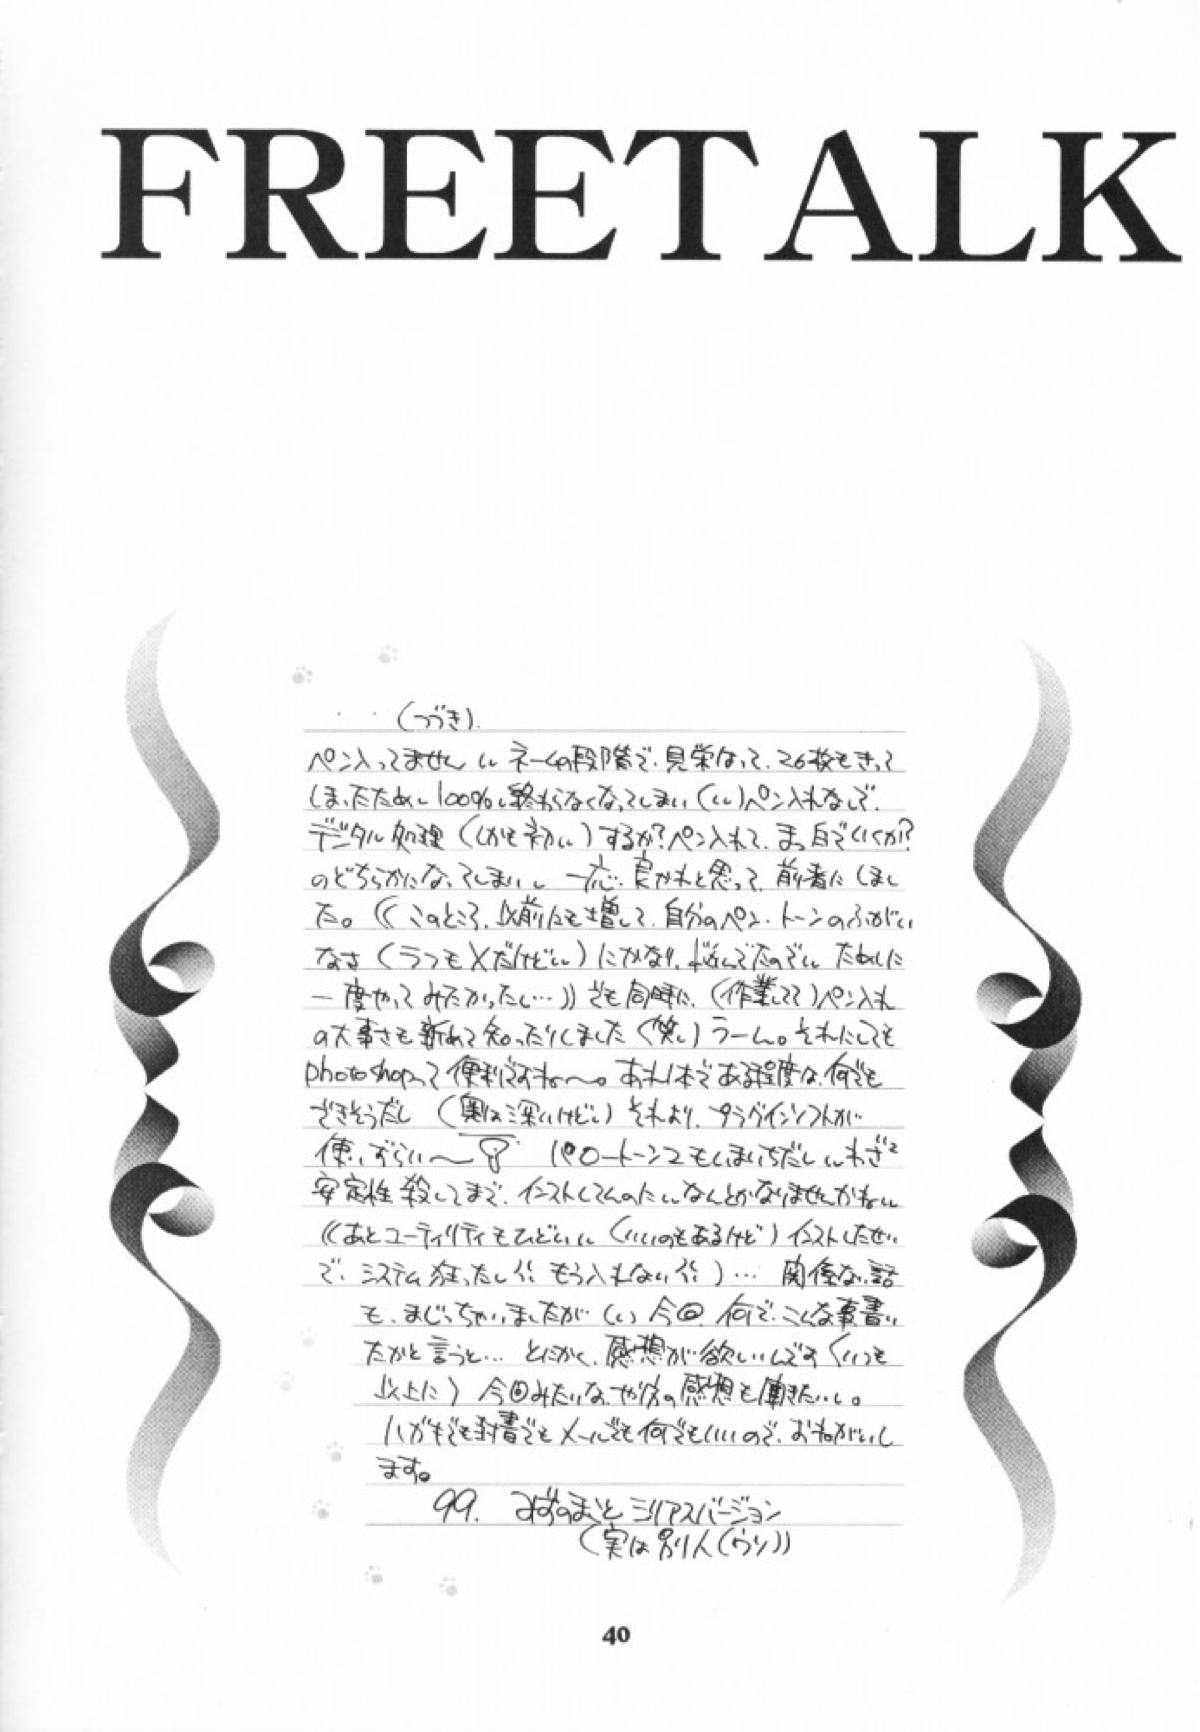 FREETALK
(つづき).
ペン入ってません ネームの段階で、見栄はって、26枚もきって
しまったため 100% 終わらなくなってしまい ペン入れなしで、
デジタル処理(しかも初)するか?ペン入れて、まっ白でいくか?
のどちらかになってしまい 一応、良かれと思って、前者にしまし
た。((このところ、以前にも増して、自分のペン・トーンのふがい
なさ(ラフもXだけど)にかなり、悩んでたので ためしに
一度やってみたかったし…)) でも同時に、(作業してて)ペン入れ
の大事さも新めて知ったりしました(笑)うーん。それにしても
photoshopって便利ですね〜。あれ1本である程度は、何でも
できそうだし(奥は深いけど)それより、プラグインソフトが
使いずらい〜 パワートーン2もいまいちだし わざと
安定性殺してまで、インストしてんのに なんとかなりませんかね
((あとユーティリティもひどい(いいのもあるけど)インストしたせい
で、システム狂ったし!! もう入れない!!)… 関係ない話
も、まじっちゃいましたが 今回、何で、こんな事書い
たかと言うと… とにかく、感想が欲しいんです(いつも
以上に) 今回みたいな、やり方の感想も聞きたいし。
ハガキでも封書でもメールでも何でもいいので、おねがいし
ます。
99. みずのまこと シリアスバージョン
(実は別人(ウソ))
40